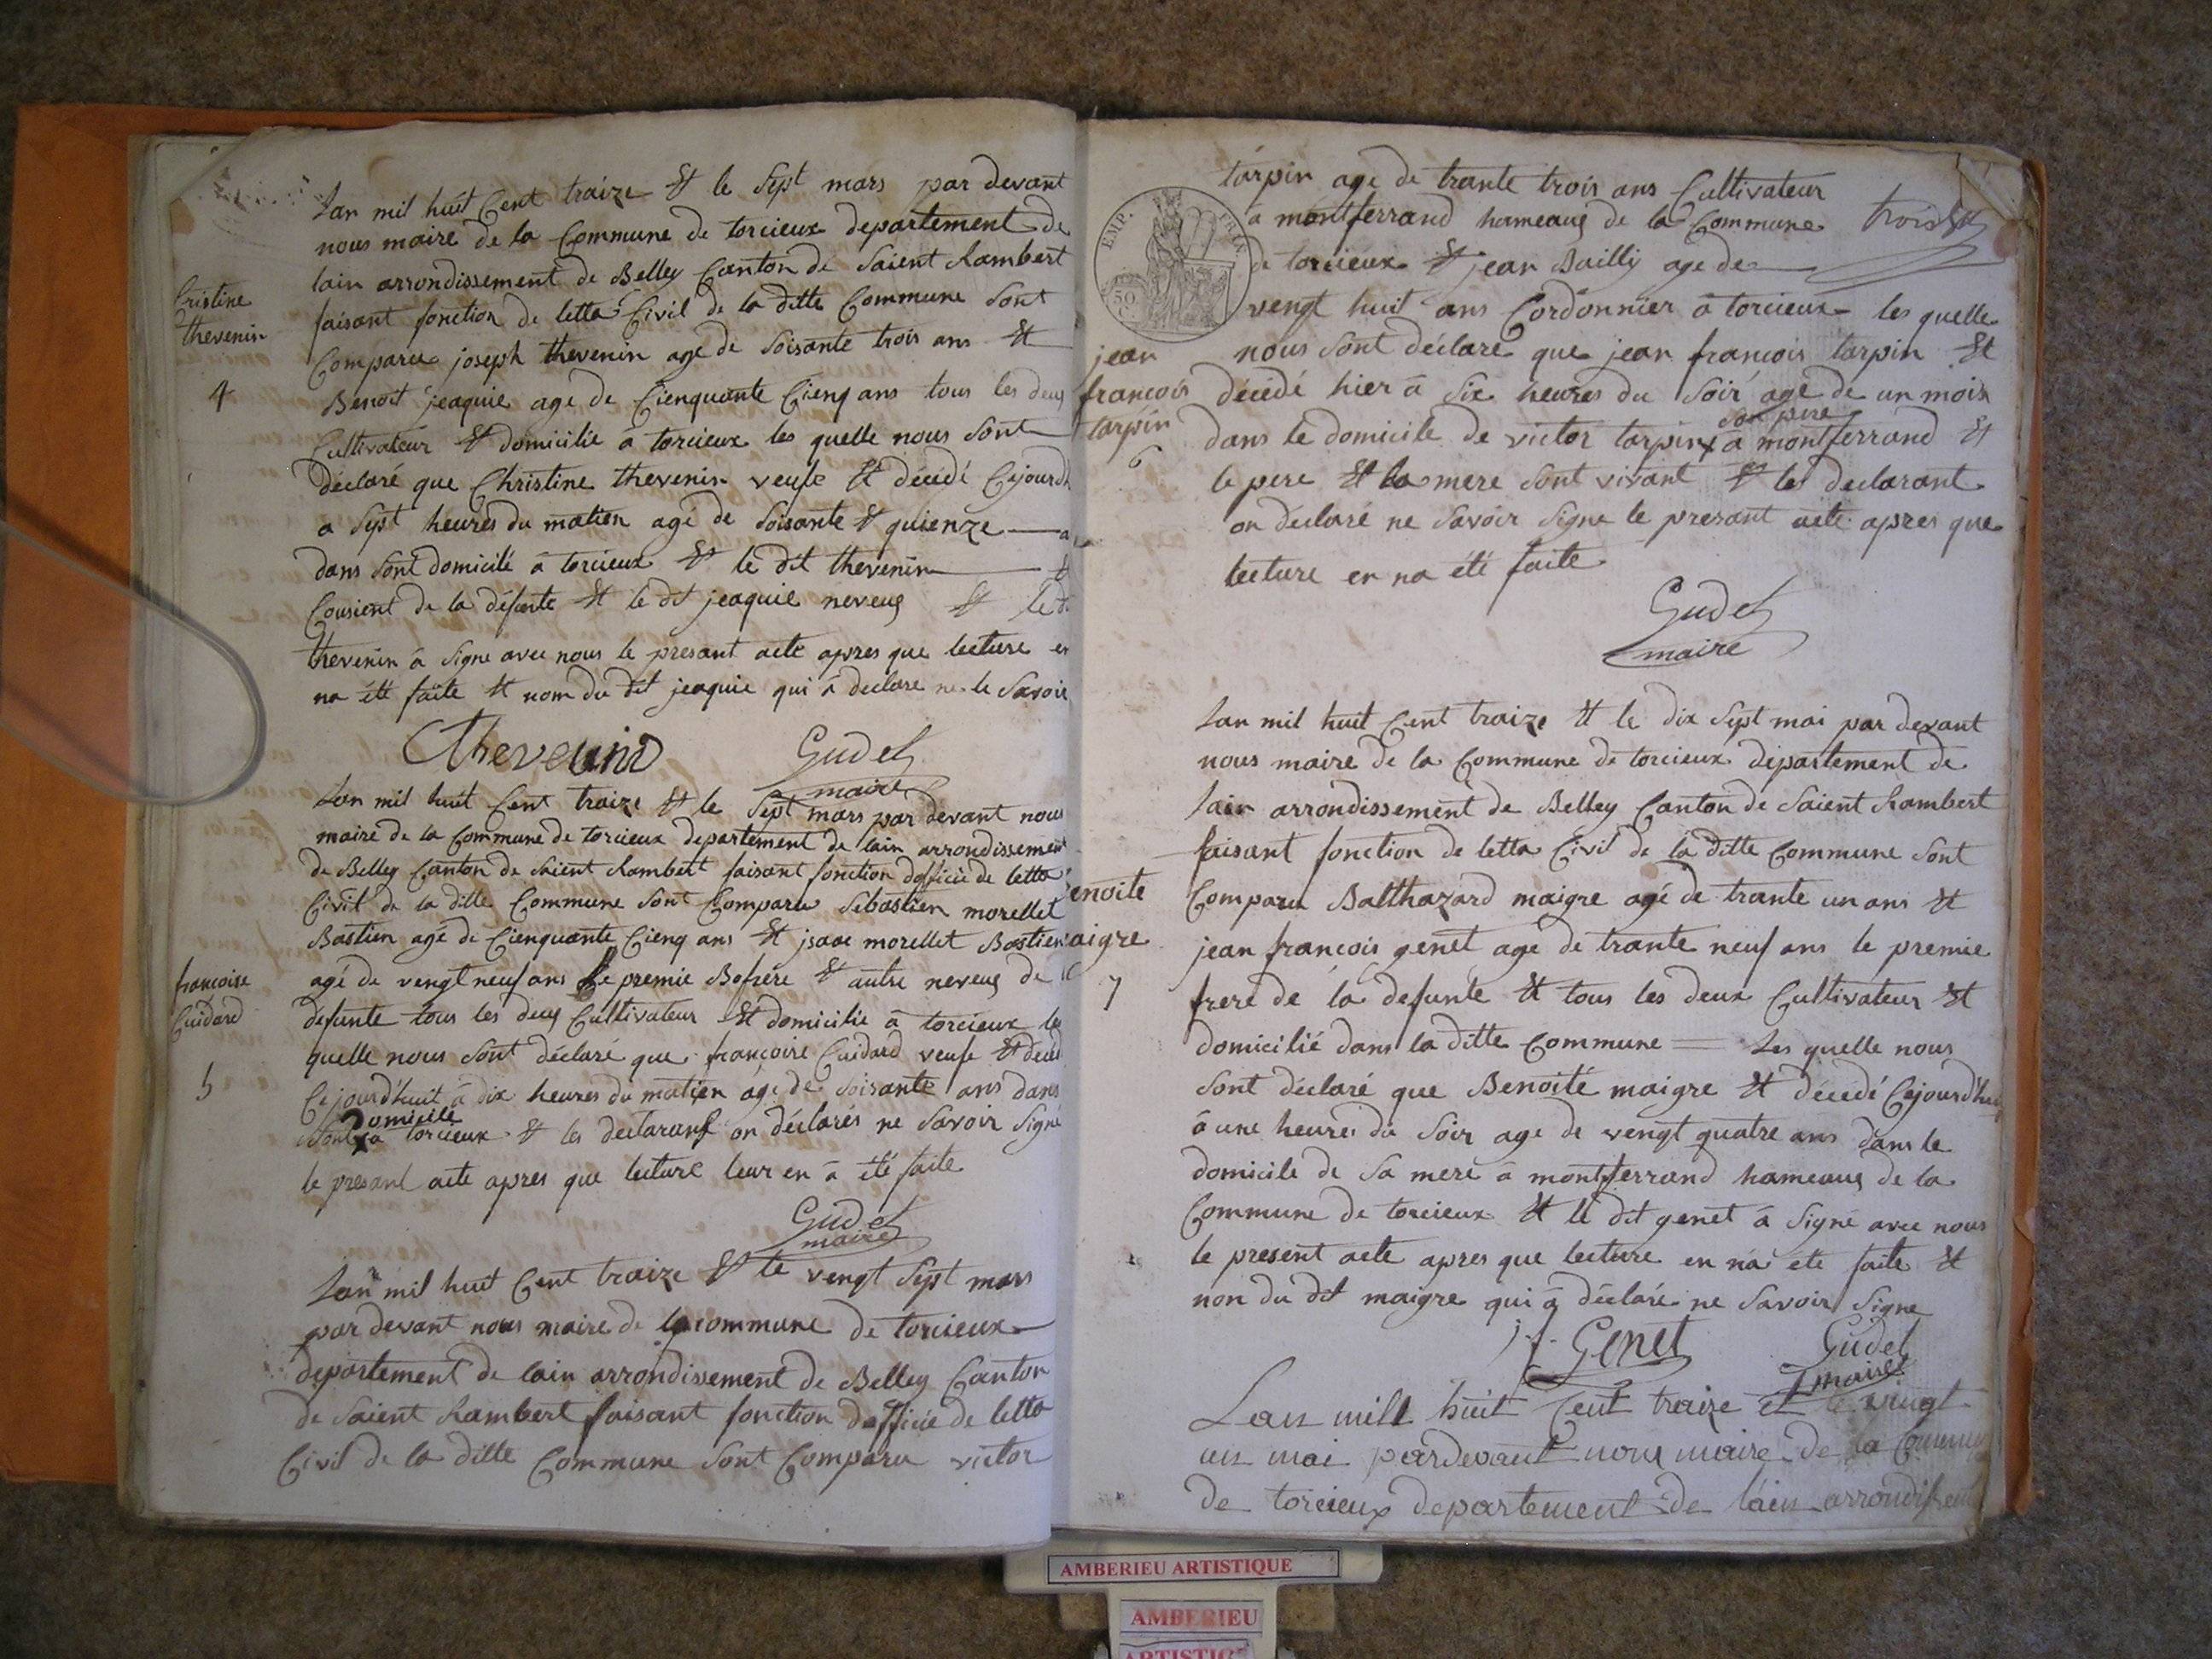 Lan mil huit Cent traize Et le Sept mars par devant
nous maire de la Commune de torcieux departement de
lain arrondissement de Belley Canton de Saient Rambert
faisant fonction de letta Civil de la ditte Commune Sont
Comparu joseph thevenin age de Soisante trois ans Et
Benoit jeaquie age de Cienquante Cienq ans tous les deux
Cultivateur Et domicilie à torcieux les quelle nous Sont
déclaré que Christine thevenin veufe Et décédé Cejourdh
a Sept heures du matien agé de Soisante Et quienze
dans Sont domicilé à torcieux Et le dit thevenin
Cousient de la défunte Et le dit jeaquie neveux Et le
thevenin à Signe avec nous le presant acte apres que lecture en
na été faite Et nom du dit jeaquie qui à declare ne le Savoir
Cristine
thevenin
4
Thevenin
Gudet
maire
Lan mil huit Cent traize Et le Sept mars par devant nous
maire de la Commune de torcieux departement de lain arrondissement
de Belley Canton de Saient Rambert faisant fonction dofficie de letta
Civil de la ditte Commune Sont Comparu Sebastien morellet
Bastien agé de Cienquante Cienq ans Et jsaac morellet Bastien
agé de vengt neuf ans Le premie Bofrere Et autre neveux de
defunte tous les deux Cultivateur Et domicilie à torcieux les
quelle nous Sont déclaré que françoise Guidard veufe Et
Cejourd'huit à dix heures du matien agé de Soisante ans dans
domicile
Sont à torcieux Et les declarant on déclarés ne Savoir Signé
le presant acte apres que lecture leur en à été faite
françoise
Guidard
5
Gudet
maire
Lan mil huit Cent traize Et le vengt Sept mars
par devant nous maire de la commune de torcieux
departement de lain arrondissement de Belley Canton
de Saient Rambert faisant fonction dofficie de letta
Civil de la ditte Commune Sont Comparu victor
tarpin age de trante trois ans Cultivateur
à montferrand hameaux de la Commune
de torcieux Et jean Bailly age de
vengt huit ans Cordonnier à torcieux les quelle
nous Sont déclaré que jean francois tarpin Et
décédé hier à Six heures du Soir agé de un mois
son pere
dans le domicile de victor tarpin à montferrand Et
le pere Et la mere Sont vivant Et les declarant
on déclaré ne Savoir Signe le presant acte apres que
lecture en na été faite
EMP.
50
C
jean
francois
tarpin
6
Gudet
maire
Lan mil huit Cent traize Et le dix Sept mai par devant
nous maire de la Commune de torcieux département de
lain arrondissement de Belley Canton de Saient Rambert
faisant fonction de letta Civil de la ditte Commune Sont
Comparu Balthazard maigre agé de trante un ans Et
jean françois genet age de trante neuf ans le premie
frere de la defunte Et tous les deux Cultivateur Et
domicilié dans la ditte Commune Les quelle nous
Sont déclaré que Benoité maigre Et décédé Cejourd'hu
à une heure du Soir age de vengt quatre ans dans le
domicile de Sa mere à montferrand hameaux de la
Commune de torcieux Et le dit genet à Signé avec nous
le present acte apres que lecture en na été faite Et
non du dit maigre qui à déclaré ne Savoir Signe
enoite
aigre
7
j f Genet
Gudet
maire
Lan mill huit Cent traize et le vingt
un mai pardevant nous maire de la Commune
de torcieux departement de lain arrondissement
AMBERIEU ARTISTIQUE
AMBERIEU
ARTISTIQ